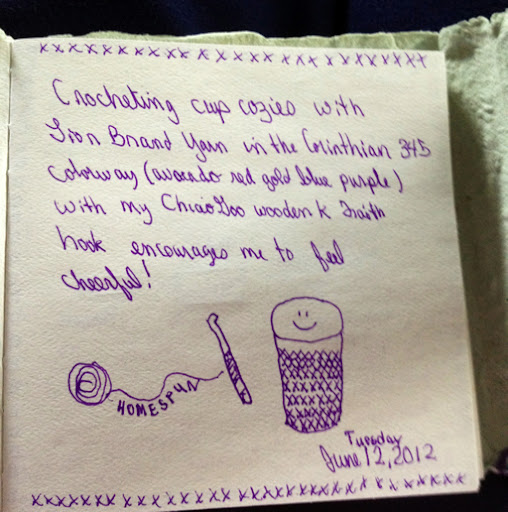 xxxxxxxxxxxxxxxxxxxxxxxxxxxxxx
Crocheting cup cozies with
Lion Brand Yarn in the Corinthian 345
colorway (avocado red gold blue purple)
with my ChiaoGoo wooden K
hook encourages me to feel
cheerful!
HOMESPUN
Tuesday
June 12, 2012
xxxxxxxxxxxxxxxxxxxxxxxxxxxxxxxxxxx